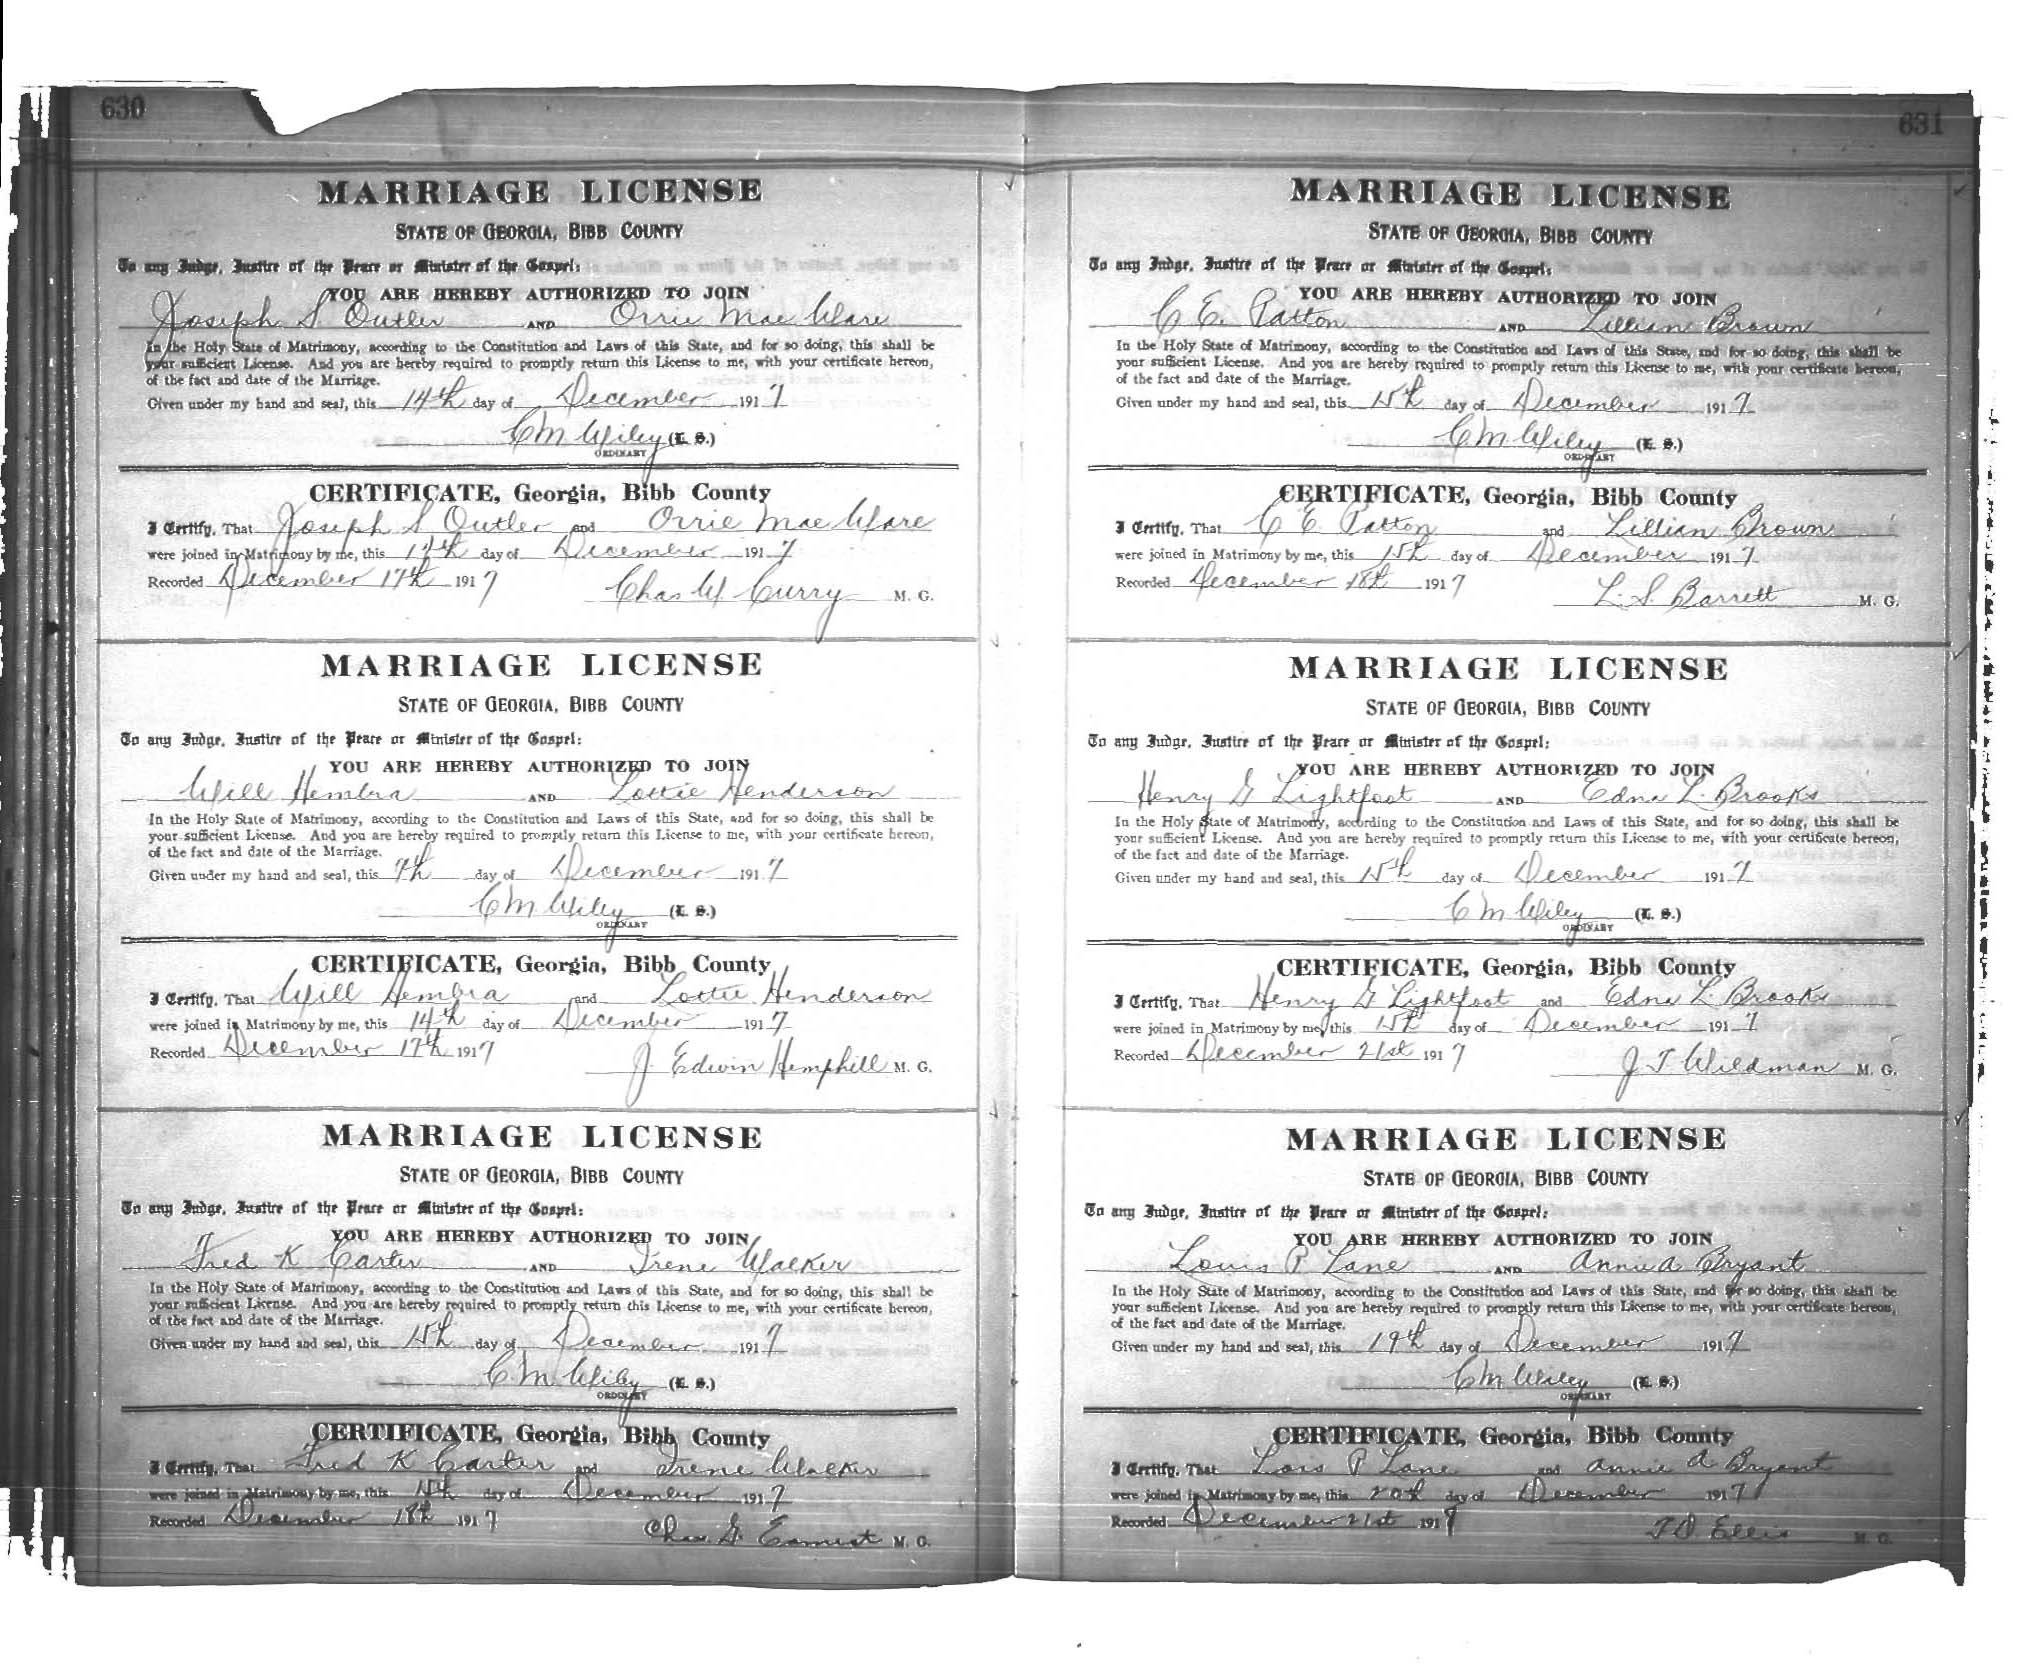 630
MARRIAGE LICENSE
STATE OF GEORGIA, BIBB COUNTY
To any Judge, Justice of the Peace or Minister of the Gospel:
YOU ARE HEREBY AUTHORIZED TO JOIN
Joseph S Outler AND Orrie Mae Ware
In the Holy State of Matrimony, according to the Constitution and Laws of this State, and for so doing, this shall be
your sufficient License. And you are hereby required to promptly return this License to me, with your certificate hereon,
of the fact and date of the Marriage.
Given under my hand and seal, this 14th day of December 1917
C M Wiley (L. S.)
ORDINARY
CERTIFICATE, Georgia, Bibb County
I Certify, That Joseph S Outler and Orrie Mae Ware
were joined in Matrimony by me, this day of December 1917
Recorded December 17th 1917 Chas W Curry M. G.
MARRIAGE LICENSE
STATE OF GEORGIA, BIBB COUNTY
To any Judge, Justice of the Peace or Minister of the Gospel:
YOU ARE HEREBY AUTHORIZED TO JOIN
Will Hembra AND Lottie Henderson
In the Holy State of Matrimony, according to the Constitution and Laws of this State, and for so doing, this shall be
your sufficient License. And you are hereby required to promptly return this License to me, with your certificate hereon,
of the fact and date of the Marriage.
Given under my hand and seal, this 7th day of December 1917
C M Wiley (L. S.)
ORDINARY
CERTIFICATE, Georgia, Bibb County
I Certify, That Will Hembra and Lottie Henderson
were joined in Matrimony by me, this 14th day of December 1917
Recorded December 17th 1917 J Edwin Hemphill M. G.
MARRIAGE LICENSE
STATE OF GEORGIA, BIBB COUNTY
To any Judge, Justice of the Peace or Minister of the Gospel:
YOU ARE HEREBY AUTHORIZED TO JOIN
Fred K Carter AND Irene Walker
In the Holy State of Matrimony, according to the Constitution and Laws of this State, and for so doing, this shall be
your sufficient License. And you are hereby required to promptly return this License to me, with your certificate hereon,
of the fact and date of the Marriage.
Given under my hand and seal, this 15th day of December 1917
C. M. Wiley (L. S.)
ORDINARY
CERTIFICATE, Georgia, Bibb County
I Certify, That Fred K Carter and Irene Walker
were joined in Matrimony by me, this 15th day of December 1917
Recorded December 18th 1917 Chas. G. Earnest M. G.
631
MARRIAGE LICENSE
STATE OF GEORGIA, BIBB COUNTY
To any Judge, Justice of the Peace or Minister of the Gospel:
YOU ARE HEREBY AUTHORIZED TO JOIN
C E. Patton AND Lillian Brown
In the Holy State of Matrimony, according to the Constitution and Laws of this State, and for so doing, this shall be
your sufficient License. And you are hereby required to promptly return this License to me, with your certificate hereon,
of the fact and date of the Marriage.
Given under my hand and seal, this 15th day of December 1917
C M Wiley (L. S.)
ORDINARY
CERTIFICATE, Georgia, Bibb County
I Certify, That C E. Patton and Lillian Brown
were joined in Matrimony by me, this 15th day of December 1917
Recorded December 18th 1917 L. S. Barrett M. G.
MARRIAGE LICENSE
STATE OF GEORGIA, BIBB COUNTY
To any Judge, Justice of the Peace or Minister of the Gospel:
YOU ARE HEREBY AUTHORIZED TO JOIN
Henry G Lightfoot AND Edna L. Brooks
In the Holy State of Matrimony, according to the Constitution and Laws of this State, and for so doing, this shall be
your sufficient License. And you are hereby required to promptly return this License to me, with your certificate hereon,
of the fact and date of the Marriage.
Given under my hand and seal, this 15th day of December 1917
C M Wiley (L. S.)
ORDINARY
CERTIFICATE, Georgia, Bibb County
I Certify, That Henry G Lightfoot and Edna L. Brooks
were joined in Matrimony by me, this 15th day of December 1917
Recorded December 21st 1917 J T. Wildman M. G.
MARRIAGE LICENSE
STATE OF GEORGIA, BIBB COUNTY
To any Judge, Justice of the Peace or Minister of the Gospel:
YOU ARE HEREBY AUTHORIZED TO JOIN
Louis P Lane AND Annie A Bryant
In the Holy State of Matrimony, according to the Constitution and Laws of this State, and for so doing, this shall be
your sufficient License. And you are hereby required to promptly return this License to me, with your certificate hereon,
of the fact and date of the Marriage.
Given under my hand and seal, this 19th day of December 1917
C M Wiley (L. S.)
ORDINARY
CERTIFICATE, Georgia, Bibb County
I Certify, That Lois P Lane and Annie A Bryant
were joined in Matrimony by me, this 20th day of December 1917
Recorded December 21st 1917 T. D. Ellis M. G.